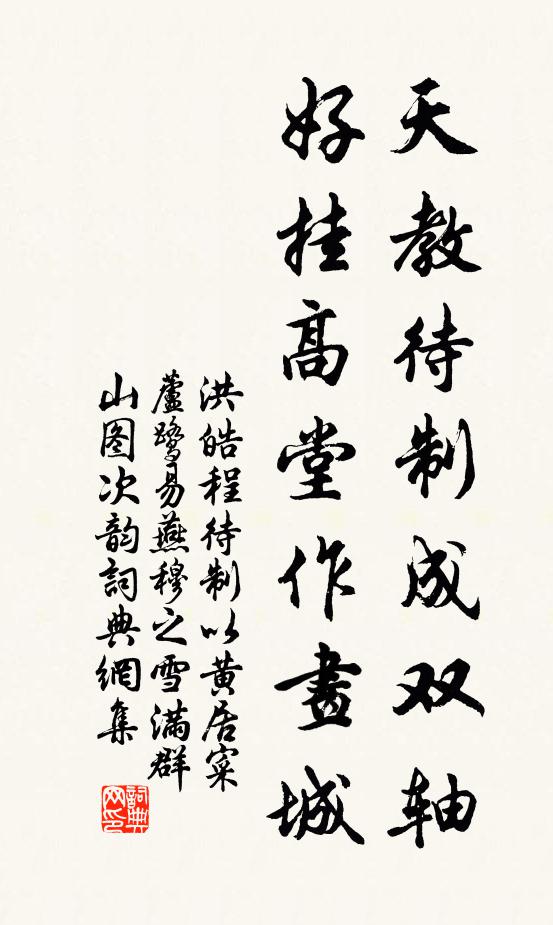 天教待制成双轴
好挂高堂作畫城
洪皓程待制以黄居寀
蘆鹭易燕穆之雪满群
山图次韵詞典網集
詞典网印